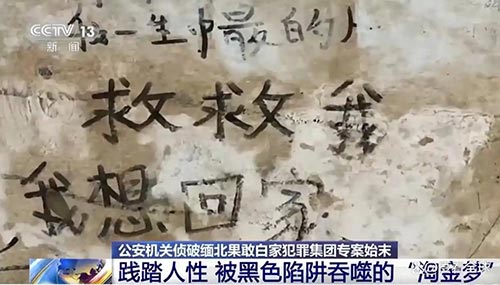 CCTV 13
新闻
我一生中最的人
救救我
我想回家
公安机关侦破缅北果敢白家犯罪集团专案始末
践踏人性 被黑色陷阱吞噬的 淘金梦